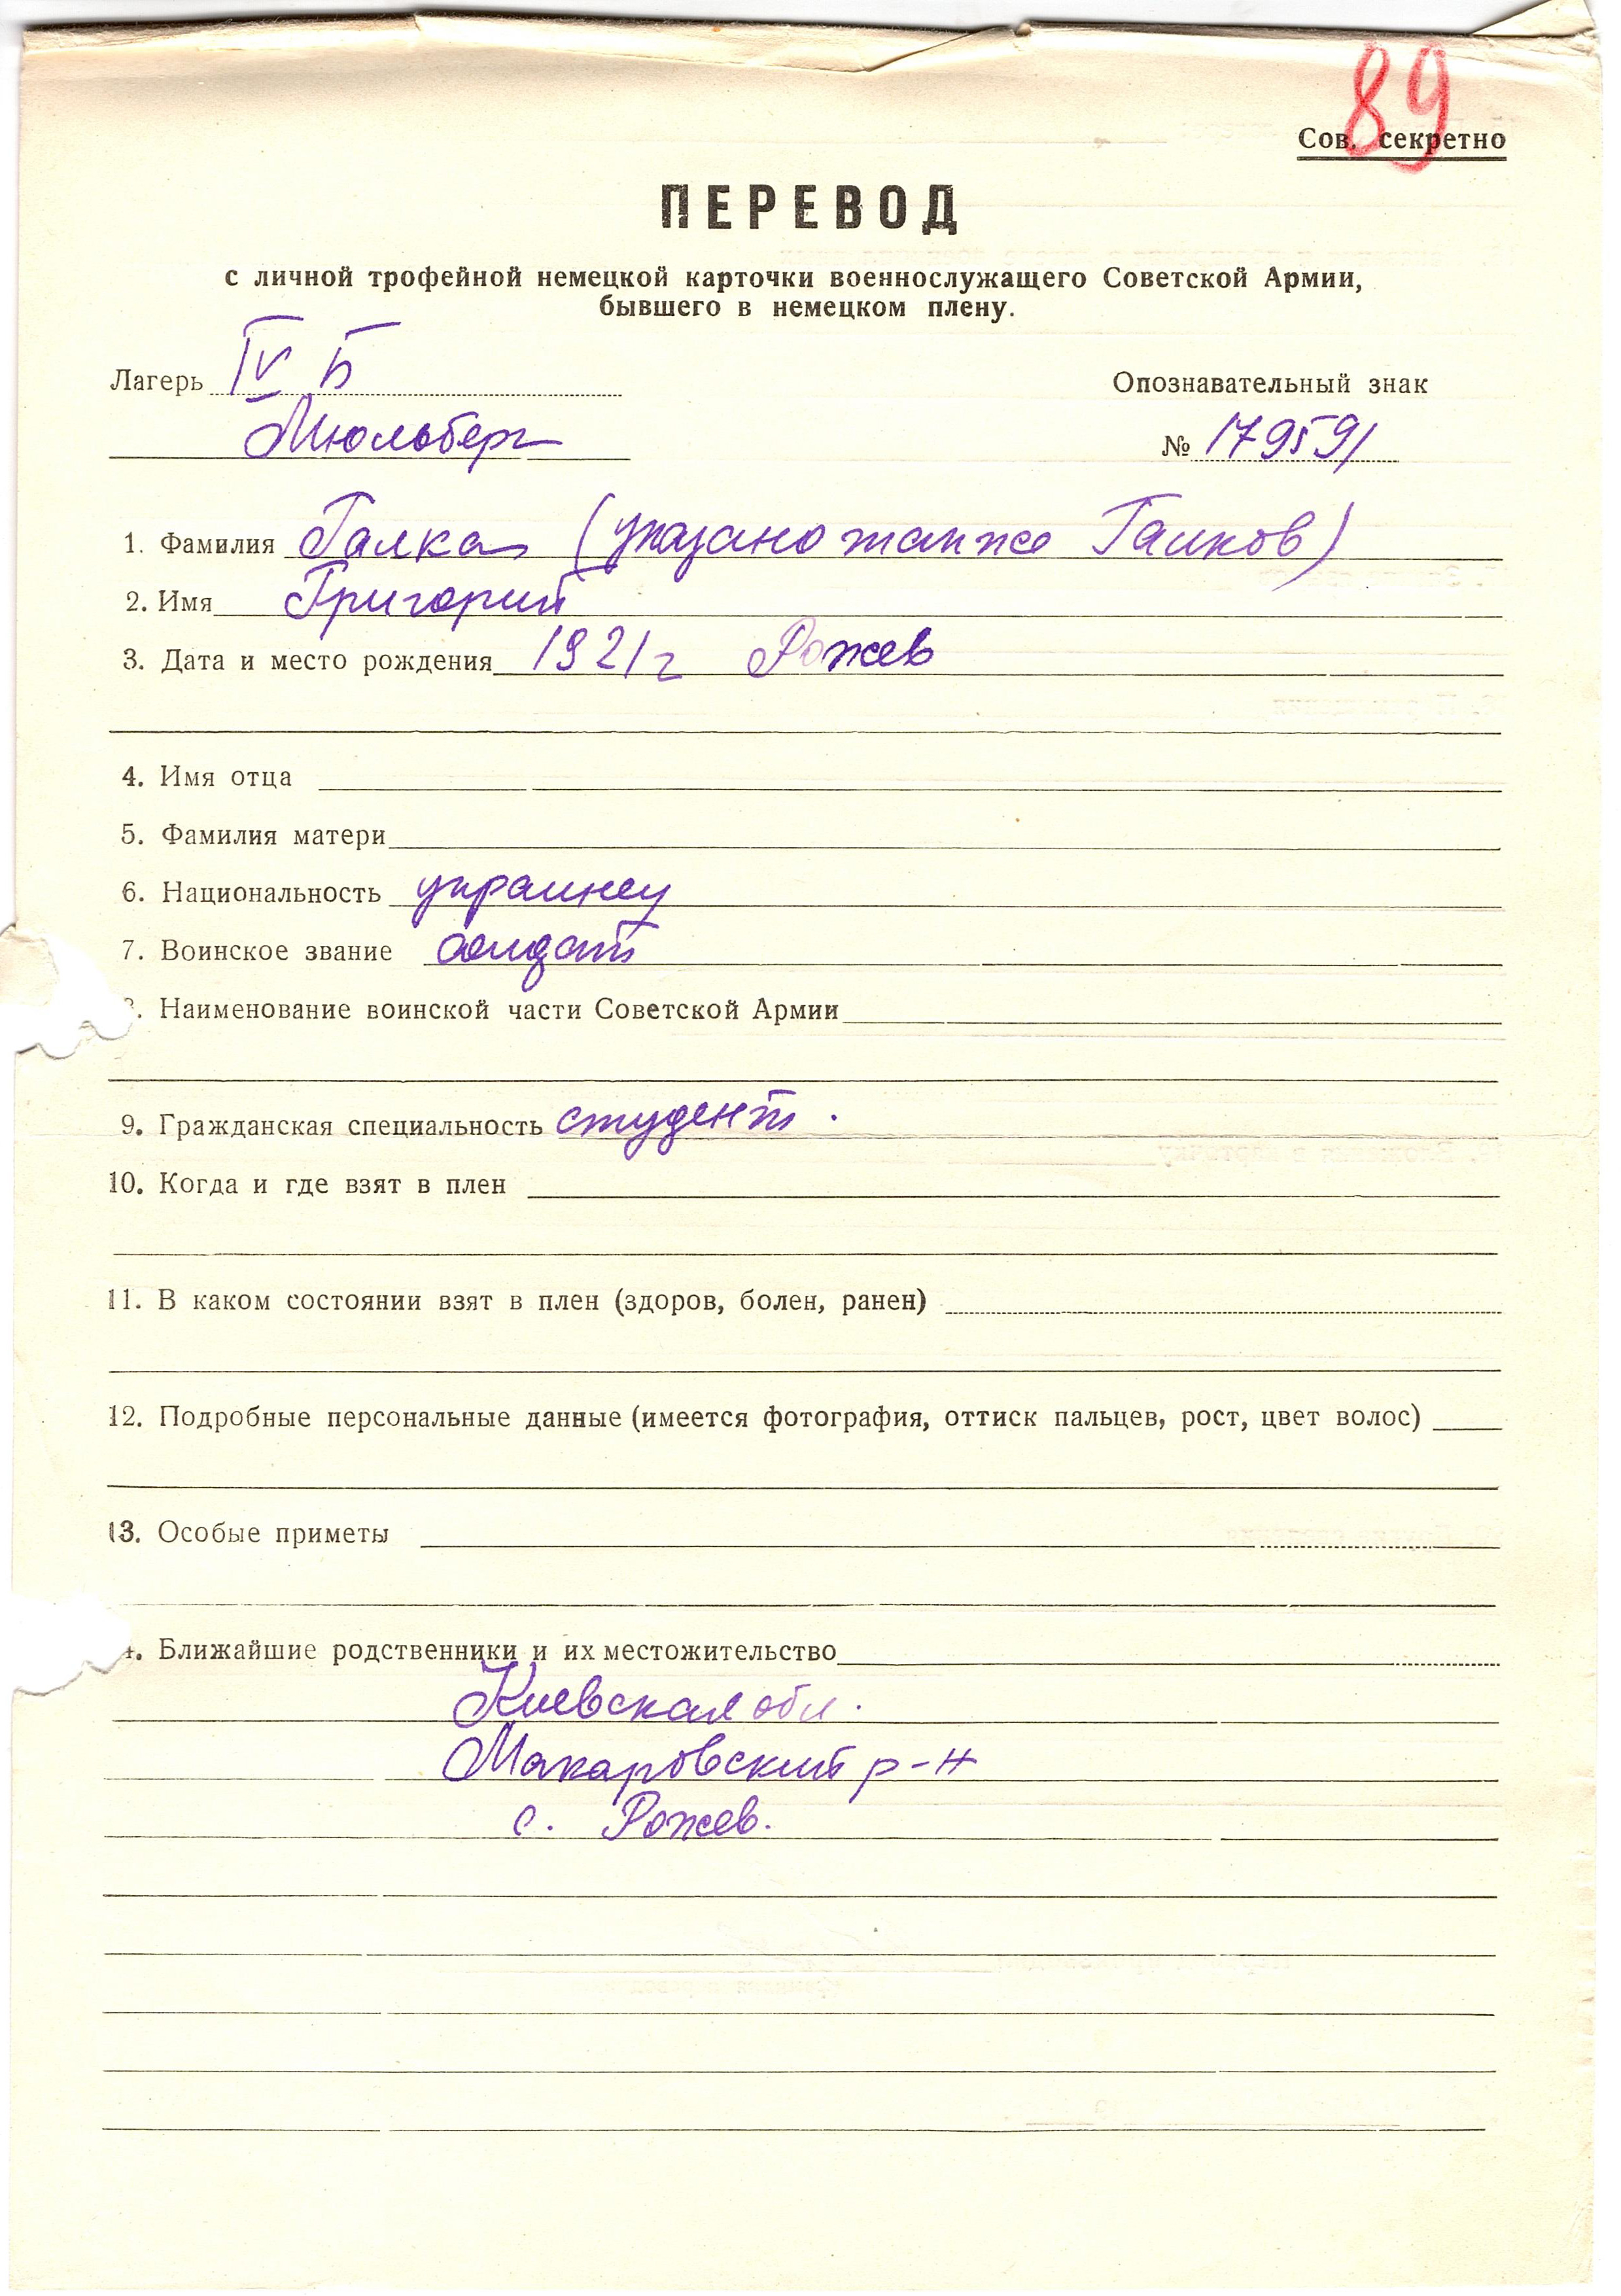 89
Сов. секретно
ПЕРЕВОД
с личной трофейной немецкой карточки военнослужащего Советской Армии,
бывшего в немецком плену.
Лагерь IV Б
Опознавательный знак
Мюльберг
№ 179591
1. Фамилия Галка (указано также Галков)
2. Имя Григорий
3. Дата и место рождения 1921 г Рожев
4. Имя отца
5. Фамилия матери
6. Национальность украинец
7. Воинское звание солдат
. Наименование воинской части Советской Армии
9. Гражданская специальность студент.
10. Когда и где взят в плен
11. В каком состоянии взят в плен (здоров, болен, ранен)
12. Подробные персональные данные (имеется фотография, оттиск пальцев, рост, цвет волос)
13. Особые приметы
4. Ближайшие родственники и их местожительство
Киевская обл.
Макаровский р-н
с. Рожев.